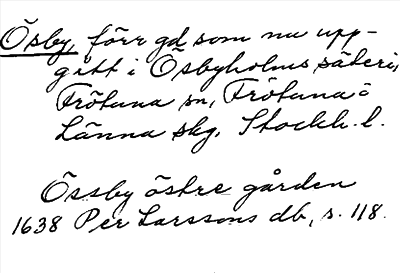 Ösby, förr gd som nu upp-
gått i Ösbyholms säteri,
Frötuna sn, Frötuna o
Länna skg. Stockh. l.
Össby östre gården
1638 Per Larssons db, s. 118.